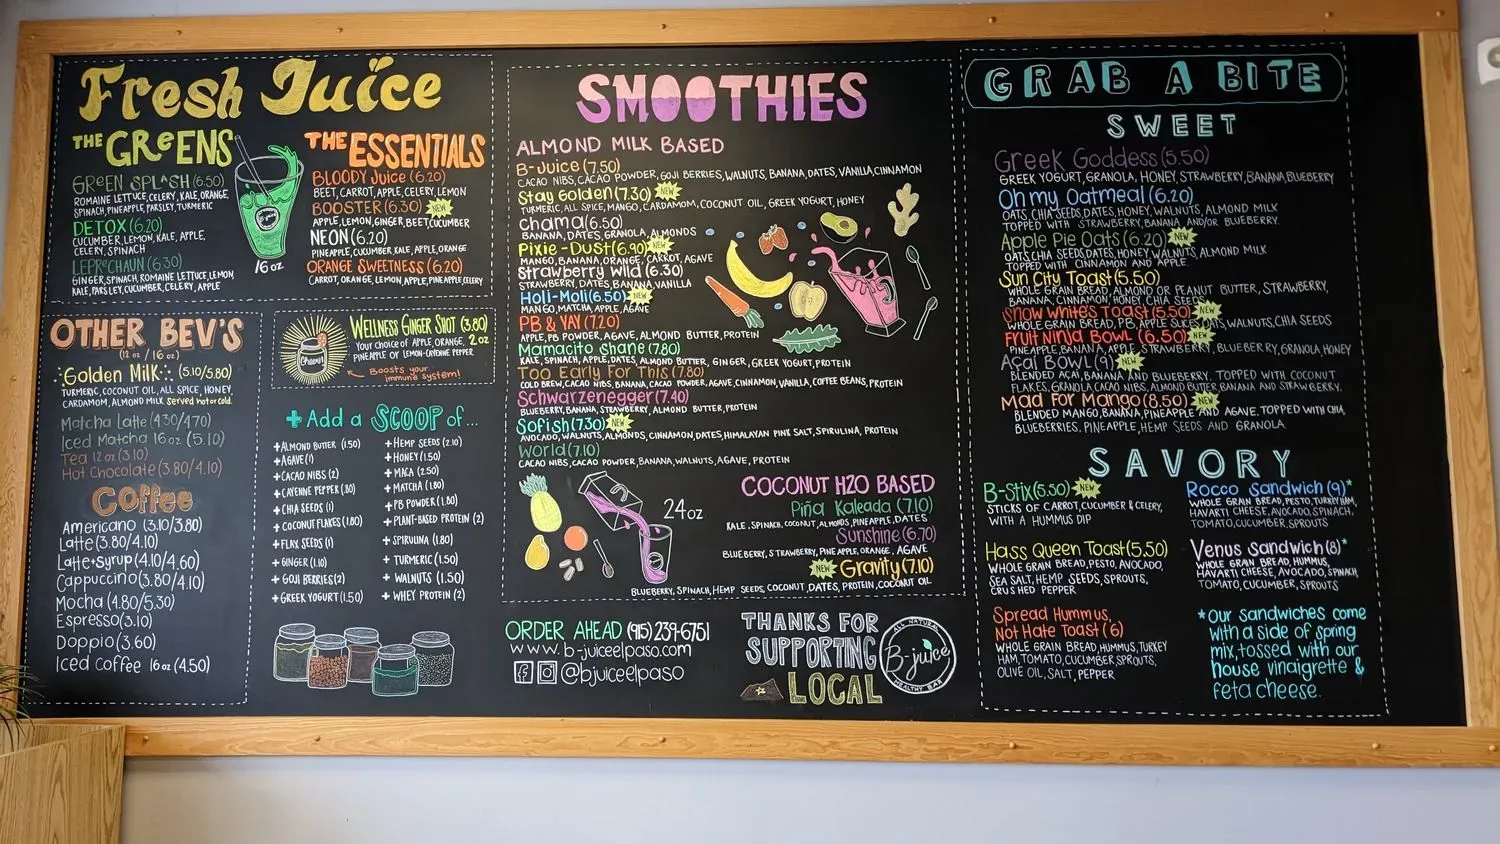 Fresh Juice
THE GReENS
GReEN SPLASH (6.50)
ROMAINE LETTUCE, CELERY, KALE, ORANGE,
SPINACH, PINEAPPLE, PARSLEY, TURMERIC
DETOX (6.20)
CUCUMBER, LEMON, KALE, APPLE,
CELERY, SPINACH
LEPReCHAUN (6.30)
GINGER, SPINACH, ROMAINE LETTUCE, LEMON,
KALE, PARSLEY, CUCUMBER, CELERY, APPLE
16 oz
THE ESSENTIALS
BLOODY Juice (6.20)
BEET, CARROT, APPLE, CELERY, LEMON
BOOSTER (6.30) NEW
APPLE, LEMON, GINGER, BEET, CUCUMBER
NEON (6.20)
PINEAPPLE, CUCUMBER, KALE, APPLE, ORANGE
ORANGE SWEETNESS (6.20)
CARROT, ORANGE, LEMON, APPLE, PINEAPPLE, CELERY
OTHER BEV'S
(12 oz / 16 oz)
Golden Milk (5.10/5.80)
TURMERIC, COCONUT OIL, ALL SPICE, HONEY,
CARDAMOM, ALMOND MILK served hot or cold.
Matcha Latte (4.30/4.70)
Iced Matcha 16 oz (5.10)
Tea 12 oz (3.10)
Hot Chocolate (3.80/4.10)
Coffee
Americano (3.10/3.80)
Latte (3.80/4.10)
Latte+Syrup (4.10/4.60)
Cappuccino (3.80/4.10)
Mocha (4.80/5.30)
Espresso (3.10)
Doppio (3.60)
Iced Coffee 16 oz (4.50)
WELLNESS GINGER SHOT (3.80)
Your choice of APPLE, ORANGE, 2 oz
PINEAPPLE or LEMON-CAYENNE PEPPER
Boosts your
immune system!
+ Add a SCOOP of...
+ ALMOND BUTTER (1.50)
+ AGAVE (1)
+ CACAO NIBS (2)
+ CAYENNE PEPPER (.80)
+ CHIA SEEDS (1)
+ COCONUT FLAKES (1.80)
+ FLAX SEEDS (1)
+ GINGER (1.10)
+ GOJI BERRIES (2)
+ GREEK YOGURT (1.50)
+ HEMP SEEDS (2.10)
+ HONEY (1.50)
+ MACA (2.50)
+ MATCHA (1.80)
+ PB POWDER (1.80)
+ PLANT-BASED PROTEIN (2)
+ SPIRULINA (1.80)
+ TURMERIC (1.50)
+ WALNUTS (1.50)
+ WHEY PROTEIN (2)
SMOOTHIES
ALMOND MILK BASED
B-Juice (7.50)
CACAO NIBS, CACAO POWDER, GOJI BERRIES, WALNUTS, BANANA, DATES, VANILLA, CINNAMON
Stay Golden (7.30) NEW
TURMERIC, ALL SPICE, MANGO, CARDAMOM, COCONUT OIL, GREEK YOGURT, HONEY
Chama (6.50)
BANANA, DATES, GRANOLA, ALMONDS
Pixie-Dust (6.90) NEW
MANGO, BANANA, ORANGE, CARROT, AGAVE
Strawberry Wild (6.30)
STRAWBERRY, DATES, BANANA, VANILLA
Holi-Moli (6.50) NEW
MANGO, MATCHA, APPLE, AGAVE
PB & YAY (7.20)
APPLE, PB POWDER, AGAVE, ALMOND BUTTER, PROTEIN
Mamacito Shane (7.80)
KALE, SPINACH, APPLE, DATES, ALMOND BUTTER, GINGER, GREEK YOGURT, PROTEIN
Too Early For This (7.80)
COLD BREW, CACAO NIBS, BANANA, CACAO POWDER, AGAVE, CINNAMON, VANILLA, COFFEE BEANS, PROTEIN
Schwarzenegger (7.40)
BLUEBERRY, BANANA, STRAWBERRY, ALMOND BUTTER, PROTEIN
Sofish (7.30) NEW
AVOCADO, WALNUTS, ALMONDS, CINNAMON, DATES, HIMALAYAN PINK SALT, SPIRULINA, PROTEIN
World (7.10)
CACAO NIBS, CACAO POWDER, BANANA, WALNUTS, AGAVE, PROTEIN
24 oz
COCONUT H2O BASED
Piña Kaleada (7.10)
KALE, SPINACH, COCONUT, ALMONDS, PINEAPPLE, DATES
Sunshine (6.70)
BLUEBERRY, STRAWBERRY, PINEAPPLE, ORANGE, AGAVE
NEW Gravity (7.10)
BLUEBERRY, SPINACH, HEMP SEEDS, COCONUT, DATES, PROTEIN, COCONUT OIL
ORDER AHEAD (915) 239-6751
www.b-juiceelpaso.com
@bjuiceelpaso
THANKS FOR
SUPPORTING
LOCAL
ALL NATURAL
B-juice
HEALTHY BAR
GRAB A BITE
SWEET
Greek Goddess (5.50)
GREEK YOGURT, GRANOLA, HONEY, STRAWBERRY, BANANA, BLUEBERRY
Oh my Oatmeal (6.20)
OATS, CHIA SEEDS, DATES, HONEY, WALNUTS, ALMOND MILK
TOPPED WITH STRAWBERRY, BANANA AND/OR BLUEBERRY.
Apple Pie Oats (6.20) NEW
OATS, CHIA SEEDS, DATES, HONEY, WALNUTS, ALMOND MILK
TOPPED WITH CINNAMON AND APPLE.
Sun City Toast (5.50)
WHOLE GRAIN BREAD, ALMOND OR PEANUT BUTTER, STRAWBERRY,
BANANA, CINNAMON, HONEY, CHIA SEEDS
Snow White's Toast (5.50) NEW
WHOLE GRAIN BREAD, PB, APPLE SLICES, OATS, WALNUTS, CHIA SEEDS
Fruit Ninja Bowl (6.50) NEW
PINEAPPLE, BANANA, APPLE, STRAWBERRY, BLUEBERRY, GRANOLA, HONEY
Açai Bowl (9) NEW
BLENDED ACAI, BANANA AND BLUEBERRY. TOPPED WITH COCONUT
FLAKES, GRANOLA, CACAO NIBS, ALMOND BUTTER, BANANA AND STRAWBERRY.
Mad For Mango (8.50) NEW
BLENDED MANGO, BANANA, PINEAPPLE AND AGAVE. TOPPED WITH CHIA,
BLUEBERRIES, PINEAPPLE, HEMP SEEDS AND GRANOLA.
SAVORY
B-Stix (5.50) NEW
STICKS OF CARROT, CUCUMBER & CELERY,
WITH A HUMMUS DIP
Hass Queen Toast (5.50)
WHOLE GRAIN BREAD, PESTO, AVOCADO,
SEA SALT, HEMP SEEDS, SPROUTS,
CRUSHED PEPPER
Spread Hummus,
Not Hate Toast (6)
WHOLE GRAIN BREAD, HUMMUS, TURKEY
HAM, TOMATO, CUCUMBER, SPROUTS,
OLIVE OIL, SALT, PEPPER
Rocco Sandwich (9)*
WHOLE GRAIN BREAD, PESTO, TURKEY HAM,
HAVARTI CHEESE, AVOCADO, SPINACH,
TOMATO, CUCUMBER, SPROUTS
Venus Sandwich (8)*
WHOLE GRAIN BREAD, HUMMUS,
HAVARTI CHEESE, AVOCADO, SPINACH,
TOMATO, CUCUMBER, SPROUTS
*Our sandwiches come
with a side of spring
mix, tossed with our
house vinaigrette &
feta cheese.